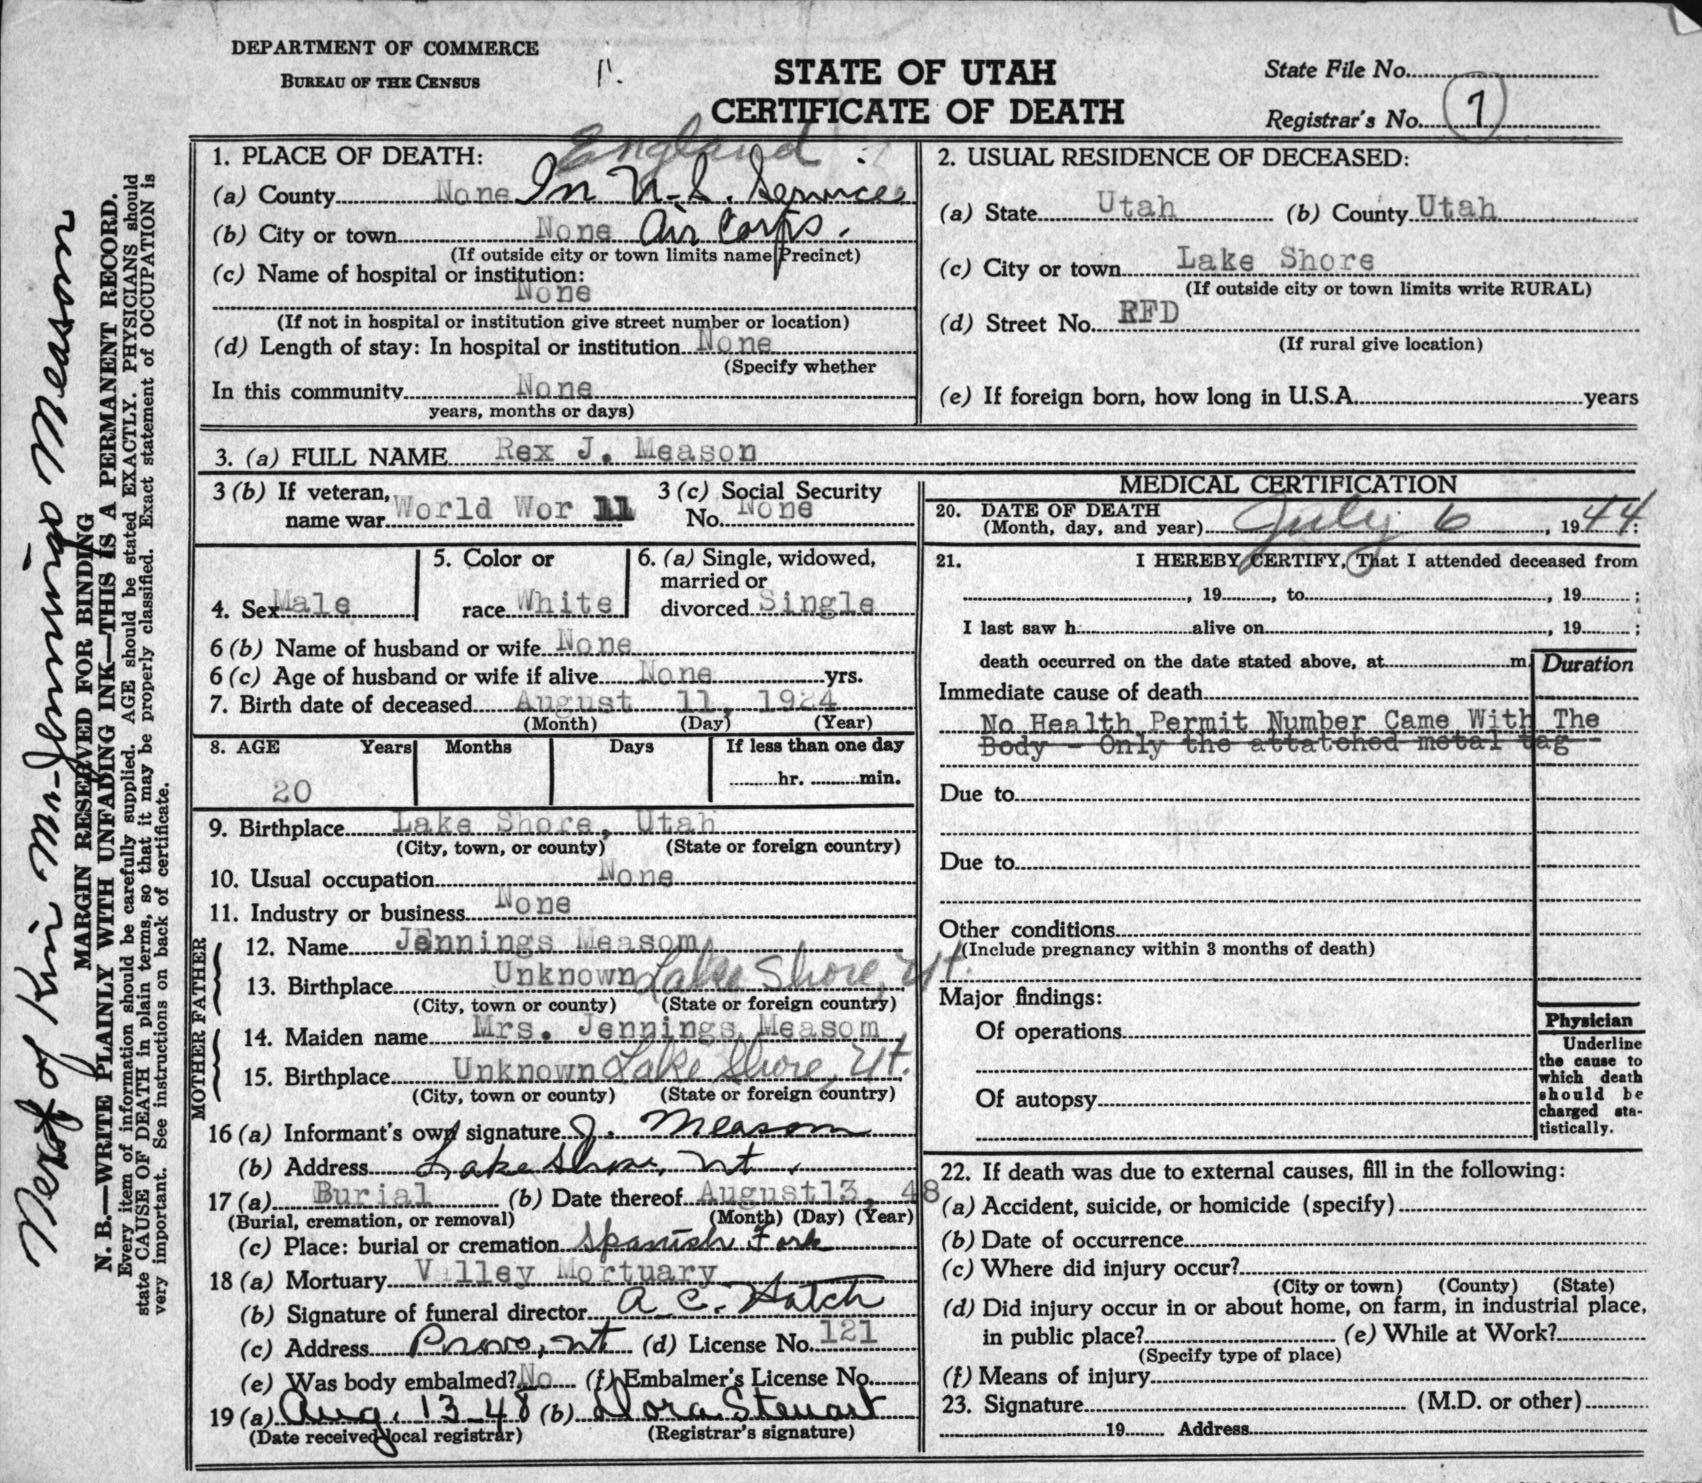 DEPARTMENT OF COMMERCE
BUREAU OF THE CENSUS
STATE OF UTAH
CERTIFICATE OF DEATH
State File No.
Registrar's No. 7
1. PLACE OF DEATH: England
(a) County None In U.S. Service
(b) City or town None Air Corps.
(If outside city or town limits name Precinct)
(c) Name of hospital or institution:
None
(If not in hospital or institution give street number or location)
(d) Length of stay: In hospital or institution None
(Specify whether
In this community None
years, months or days)
2. USUAL RESIDENCE OF DECEASED:
(a) State Utah (b) County Utah
(c) City or town Lake Shore
(If outside city or town limits write RURAL)
(d) Street No. RFD
(If rural give location)
(e) If foreign born, how long in U.S.A. years
3. (a) FULL NAME Rex J. Meason
3 (b) If veteran, name war World Wor 11
3 (c) Social Security No. None
4. Sex Male
5. Color or race White
6. (a) Single, widowed, married or divorced Single
6 (b) Name of husband or wife None
6 (c) Age of husband or wife if alive None yrs.
7. Birth date of deceased August 11, 1924
(Month) (Day) (Year)
8. AGE Years Months Days If less than one day
20 hr. min.
9. Birthplace Lake Shore, Utah
(City, town, or county) (State or foreign country)
10. Usual occupation None
11. Industry or business None
FATHER
12. Name Jennings Measom
13. Birthplace Unknown Lake Shore, Ut.
(City, town or county) (State or foreign country)
MOTHER
14. Maiden name Mrs. Jennings Measom
15. Birthplace Unknown Lake Shore, Ut.
(City, town or county) (State or foreign country)
16 (a) Informant's own signature J. Measom
(b) Address Lake Shore, Ut.
17 (a) Burial (b) Date thereof August 13, 48
(Burial, cremation, or removal) (Month) (Day) (Year)
(c) Place: burial or cremation Spanish Fork
18 (a) Mortuary Valley Mortuary
(b) Signature of funeral director A. C. Hatch
(c) Address Provo, Ut (d) License No. 121
(e) Was body embalmed? No (f) Embalmer's License No.
19 (a) Aug. 13-48 (b) Dora Stewart
(Date received local registrar) (Registrar's signature)
MEDICAL CERTIFICATION
20. DATE OF DEATH
(Month, day, and year) July 6, 1944:
21. I HEREBY CERTIFY, That I attended deceased from
, 19 , to , 19 ;
I last saw h alive on , 19 ;
death occurred on the date stated above, at m.
Duration
Immediate cause of death
No Health Permit Number Came With The
Body - Only the attatched metal tag -
Due to
Due to
Other conditions
(Include pregnancy within 3 months of death)
Major findings:
Of operations
Of autopsy
Physician
Underline
the cause to
which death
should be
charged sta-
tistically.
22. If death was due to external causes, fill in the following:
(a) Accident, suicide, or homicide (specify)
(b) Date of occurrence
(c) Where did injury occur?
(City or town) (County) (State)
(d) Did injury occur in or about home, on farm, in industrial place,
in public place? (e) While at Work?
(Specify type of place)
(f) Means of injury
23. Signature (M.D. or other)
19 Address
Next of Kin Mr. Jennings Measom
MARGIN RESERVED FOR BINDING
N. B.—WRITE PLAINLY WITH UNFADING INK—THIS IS A PERMANENT RECORD.
Every item of information should be carefully supplied. AGE should be stated EXACTLY. PHYSICIANS should
state CAUSE OF DEATH in plain terms, so that it may be properly classified. Exact statement of OCCUPATION is
very important. See instructions on back of certificate.